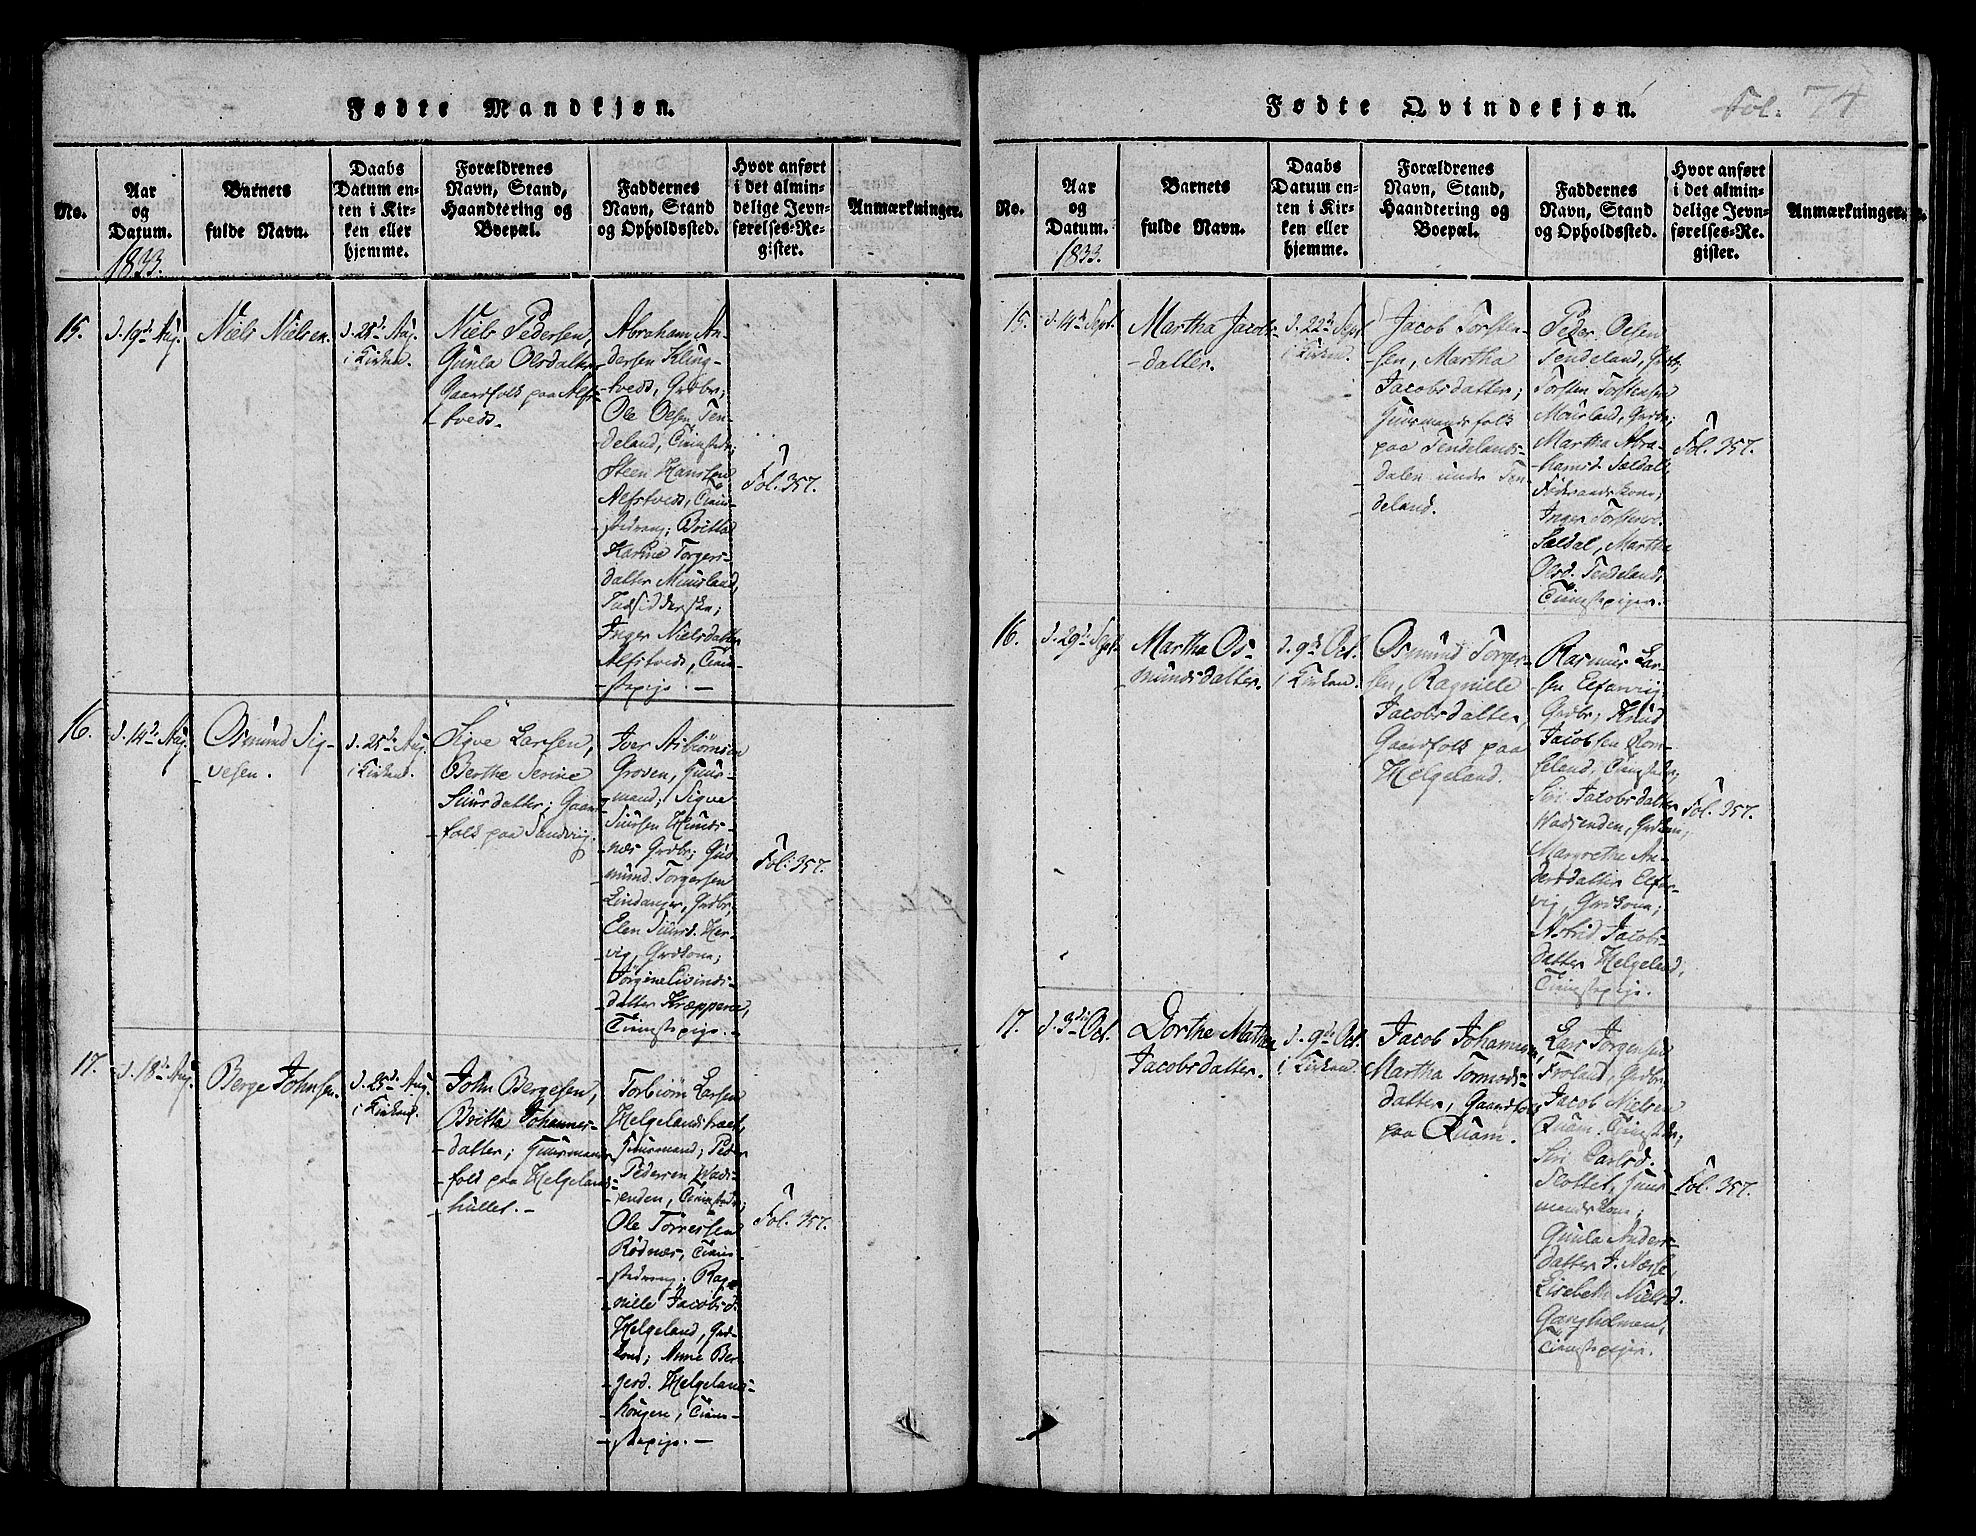 Fødte Mandkjøn.
No.
Aar
og
Datum.
1833.
Barnets
fulde Navn.
Daabs
Datum en-
ten i Kir-
ken eller
hjemme.
Forældrenes
Navn, Stand,
Haandtering og
Boepæl.
Faddernes
Navn, Stand
og Opholdssted.
Hvor anført
i det almin-
delige Jevn-
førelses-Re-
gister.
Anmærkninger.
15.
d. 19de Aug.
Niels Nielsen.
d. 25de Aug.
i Kirken.
Niels Pedersen,
Gunla Olsdatter,
Gaardfolk paa Alfs-
tvedt.
Abraham An-
dersen Kling-
tvedt, Grdbr;
Ole Olsen Ten-
deland, Tienstedr;
Steen Hansen
Alfstvedt, Tien-
stedreng; Britta
Karine Torgers-
datter Muusland,
Inger Nielsdatter
Alfstvedt, Tien-
stepige. —
Fol. 357.
16.
d. 14de Aug.
Osmund Sig-
vesen.
d. 25de Aug.
i Kirken.
Sigve Larsen,
Berthe Serine
Siursdatter; Gaard-
folk paa Sandvig.
Iver Asbiørnsen
Groven, Huus-
mand; Sigve
Siursen Hunds-
næs Grdbr; Gud-
mund Torgersen
Lindanger, Grdbr,
Elen Siursd. Her-
vig, Grdkone;
Jørgine Eivinds-
datter Kræppene,
Tienstepige. —
Fol: 357.
17.
d. 18de Aug.
Berge Johnsen.
d. 25de Aug.
i Kirken.
John Bergesen,
Britta Johannes-
datter; Huusmands-
folk paa Helgelands-
hullet. —
Torbiørn Larsen
Huusmand; Peder
Pedersen Wads-
enden, Tienstedr;
Ole Torressen
Rødnæs, Tien-
stedreng; Rag-
nille Jacobsd.
Helgeland, Grd-
kone; Anne Ber-
gesd. Helgelands-
hougen, Tien-
stepige. —
Fol. 357.
Fødte Qvindekjøn.
Fol. 74
No.
Aar
og
Datum.
1833.
Barnets
fulde Navn.
Daabs
Datum en-
ten i Kir-
ken eller
hjemme.
Forældrenes
Navn, Stand,
Haandtering og
Boepæl.
Faddernes
Navn, Stand
og Opholdssted.
Hvor anført
i det almin-
delige Jevn-
førelses-Re-
gister.
Anmærkninger.
15.
d. 14de Sept.
Martha Jacobs-
datter.
d. 22de Sept.
i Kirken.
Jacob Torsten-
sen, Martha
Jacobsdatter;
Huusmandsfolk
paa Tendelands-
dalen under Ten-
deland.
Peder Olsen
Tendeland, Grdbr,
Torsten Torstensen
Mousland, Grdbr;
Martha Abra-
hamsd. Sældal
Føderaadskone;
Inger Torstensd.
Sældal, Martha
Olsd. Tendeland,
Tienstepiger.
Fol. 357.
16.
d. 29de Sept.
Martha Os-
mundsdatter.
d. 9de Oct.
i Kirken.
Osmund Torger-
sen, Ragnille
Jacobsdatter,
Gaardfolk paa
Helgeland.
Rasmus Lar-
sen Elfarvig,
Grdbr; Knud
Jacobsen Rom-
sland, Tienstedr;
Siri Jacobsdatter
Wadsenden, Grdkone;
Margrethe An-
dersdatter Elfar-
vig, Grdkone;
Astrid Jacobs-
datter Helgeland,
Tienstepige.
Fol. 357.
17.
d. 3die Oct.
Dorthe Mathea
Jacobsdatter.
d. 9de Oct.
i Kirken.
Jacob Johannesen,
Martha Tormods-
datter, Gaardfolk
paa Quam.
Lars Jørgensen
Froland, Grdbr.
Jacob Nielsen
Quam, Tienstedr;
Siri Carlsd.
Slottet, Huus-
mandskone;
Gunla Anders-
datter I. Næsse,
Lisebeth Nielsd.
Gangholmen,
Tienstepiger.
Fol. 357.